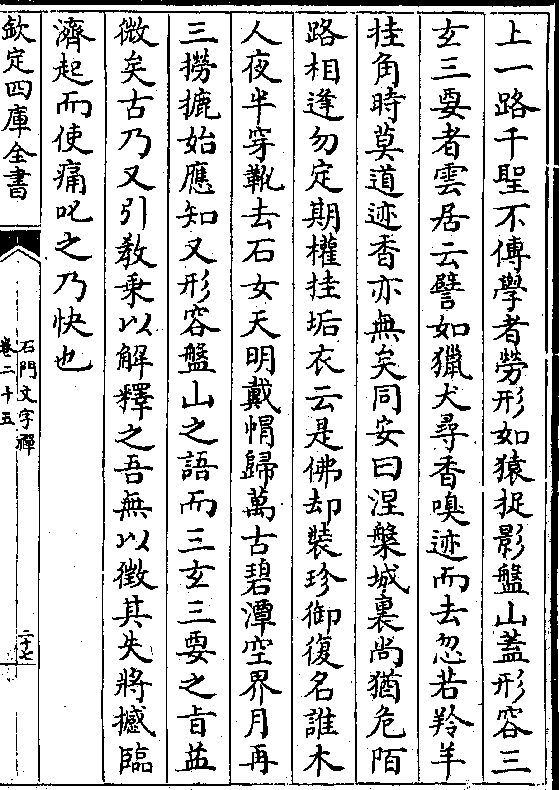 上一路千聖不傳學者勞形如猿捉影盤山蓋形容三
玄三要者雲居云譬如獵犬尋香嗅迹而去忽若羚羊
挂角時莫道迹香亦無矣同安曰涅槃城裏尚猶危陌
路相逢勿定期權挂垢衣云是佛却裝珍御復名誰木
人夜半穿靴去石女天明戴㡌歸萬古碧潭空界月再
三撈摝始應知又形容盤山之語而三玄三要之旨益
微矣古乃又引教乗以解釋之吾無以徵其失將撼臨
濟起而使痛叱之乃快也
欽定四庫全書
石門文字禪
卷二十五
二十七